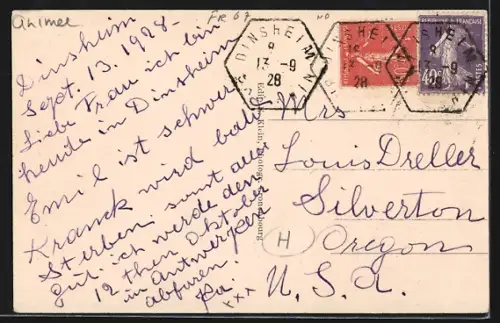 Animee
FR 67
NO
Dinsheim
Sept. 13. 1928-
Liebe Frau ich bin
heute in Dinsheim
Emil ist schwer
Kranck wird bald
Sterben. sonst alles
gut. ich werde den
12 then Oktober
in Antwerpen
abfaren.
Pa.
xxx
DINSHEIM
13-9
28
40c
POSTES
Mrs
Louis Dreller
Silverton
Oregon
U.S.A.
H